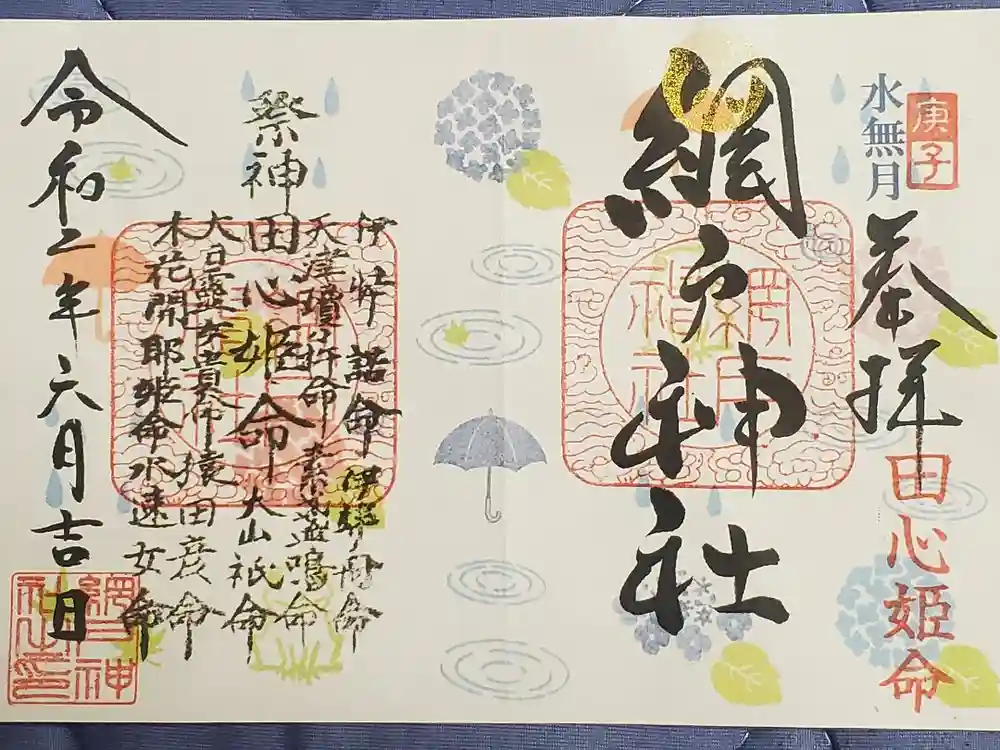 庚子
水無月
奉拝
田心姫命
網戸神社
網戸
神社
祭神
伊弉諾命 伊弉冊命
天津瓊々杵命 素盞鳴命
田心姫命 大山祇命
大日孁女貴命 猿田彦命
木花開耶姫命 水速女命
令和二年六月吉日
網戸神
社之印